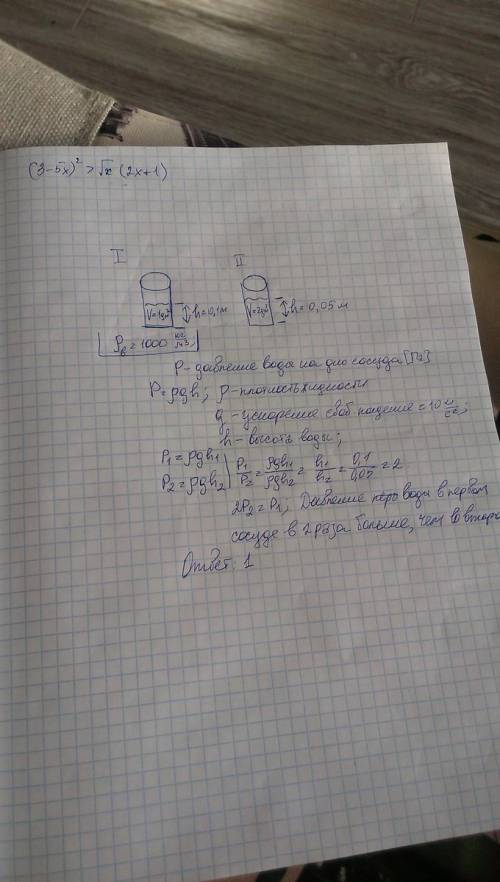 (3-5x)² > √x (2x+1)
I
II
V=1дм³
h=0,1м
V=2дм³
h=0,05м
ρв=1000 кг/м³
P - давление воды на дно сосуда [Па]
P=ρgh; ρ - плотность жидкости
g - ускорение своб. падения =10 м/с²;
h - высота воды;
P₁=ρgh₁
P₂=ρgh₂
P₁/P₂ = ρgh₁/ρgh₂ = h₁/h₂ = 0,1/0,05 = 2
2P₂=P₁; Давление воды в первом
сосуде в 2 раза больше, чем во второ
Ответ: 1